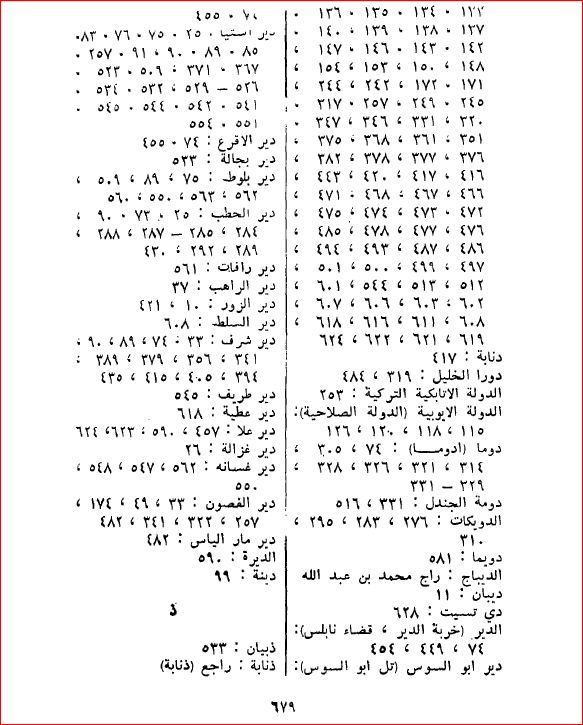 ١٢٢ ، ١٣٤ ، ١٣٥ ، ١٣٦ ،
١٣٧ ، ١٣٨ ، ١٣٩ ، ١٤٠ ،
١٤٢ ، ١٤٣ ، ١٤٦ ، ١٤٧ ،
١٤٨ ، ١٥٠ ، ١٥٣ ، ١٥٤ ،
١٧١ ، ١٧٢ ، ٢٤٢ ، ٢٤٤ ،
٢٤٥ ، ٢٤٩ ، ٢٥٧ ، ٣١٧ ،
٣٢٠ ، ٣٣١ ، ٣٤٦ ، ٣٤٧ ،
٣٥١ ، ٣٦١ ، ٣٦٨ ، ٣٧٥ ،
٣٧٦ ، ٣٧٧ ، ٣٧٨ ، ٣٨٢ ،
٤١٦ ، ٤١٧ ، ٤٢٠ ، ٤٤٣ ،
٤٦٦ ، ٤٦٧ ، ٤٦٨ ، ٤٧١ ،
٤٧٢ ، ٤٧٣ ، ٤٧٤ ، ٤٧٥ ،
٤٧٦ ، ٤٧٧ ، ٤٧٨ ، ٤٨٥ ،
٤٨٦ ، ٤٨٧ ، ٤٩٣ ، ٤٩٤ ،
٤٩٧ ، ٤٩٩ ، ٥٠٠ ، ٥٠١ ،
٥١٢ ، ٥١٣ ، ٥٤٤ ، ٦٠١ ،
٦٠٢ ، ٦٠٣ ، ٦٠٦ ، ٦٠٧ ،
٦٠٨ ، ٦١١ ، ٦١٦ ، ٦١٨ ،
٦١٩ ، ٦٢١ ، ٦٢٢ ، ٦٢٤
دنابة : ٤١٧
دورا الخليل : ٣١٩ ، ٤٨٤
الدولة الاتابكية التركية : ٢٥٣
الدولة الايوبية (الدولة الصلاحية):
١١٥ ، ١١٨ ، ١٢٠ ، ١٢٦
دوما (ادومــا) : ٧٤ ، ٣٠٥ ،
٣١٤ ، ٣٢١ ، ٣٢٦ ، ٣٢٨ ،
٢٢٩ – ٣٣١
دومة الجندل : ٣٣١ ، ٥١٦
الدويكات : ٢٧٦ ، ٢٨٣ ، ٢٩٥ ،
٣١٠
دويما : ٥٨١
الديباج : راج محمد بن عبد الله
ديبان : ١١
دي تسيت : ٦٢٨
الدير (خربة الدير ، قضاء نابلس):
٧٤ ، ٤٤٩ ، ٤٥٤
دير ابو السوس (تل ابو السوس):
٧٠ ، ٤٥٥
دير استيا ، ٢٥ ، ٧٥ ، ٧٦ ، ٨٣،
٨٥ ، ٨٩ ، ٩٠ ، ٩١ ، ٢٥٧ ،
٣٦٧ ، ٣٧١ ، ٥٠٩ ، ٥٢٣ ،
٥٢٦ – ٥٢٩ ، ٥٣٢ ، ٥٣٤ ،
٥٤١ ، ٥٤٢ ، ٥٤٤ ، ٥٤٥ ،
٥٥١ ، ٥٥٤
دير الاقرع : ٧٤ ، ٤٥٥
دير بجالة : ٥٣٣
دير بلوط : ٧٥ ، ٨٩ ، ٥٠٩ ،
٥٦٢ ، ٥٦٣ ، ٥٥٠ ، ٥٦٠
دير الحطب : ٢٥ ، ٧٣ ، ٩٠ ،
٢٨٤ ، ٢٨٥ – ٢٨٧ ، ٢٨٨ ،
٢٨٩ ، ٢٩٢ ، ٤٣٠
دير رافات : ٥٦١
دير الراهب : ٣٧
دير الزور : ١٠ ، ٤٢١
دير السلط : ٦٠٨
دير شرف : ٣٣ ، ٧٤ ، ٨٩ ، ٩٠ ،
٣٤١ ، ٣٥٦ ، ٣٧٩ ، ٣٨٩ ،
٣٩٤ ، ٤٠٥ ، ٤١٥ ، ٤٣٥
دير طريف : ٥٤٥
دير عطية : ٦١٨
دير علا : ٤٥٧ ، ٥٩٠ ، ٦٢٣، ٦٢٤
دير غزالة : ٢٦
دير غسانه : ٥٦٢ ، ٥٤٧ ، ٥٤٨ ،
٥٥٠
دير الغصون : ٣٣ ، ٤٩ ، ١٧٤ ،
٢٥٧ ، ٣٢٢ ، ٣٤١ ، ٤٨٢
دير مار الياس : ٤٨٢
الديرة : ٥٩٠
دينة : ٩٩
ذ
ذبيان : ٥٣٣
ذنابة : راجع (ذنابة)
٦٧٩